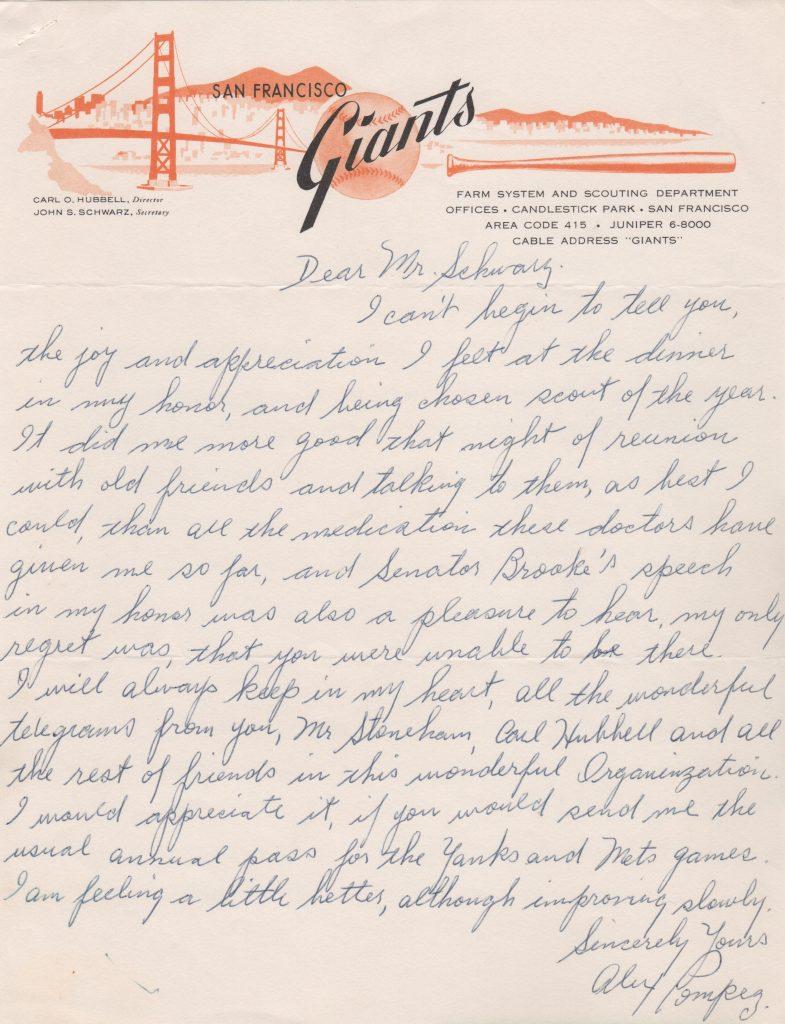 SAN FRANCISCO
Giants
CARL O. HUBBELL, Director
JOHN S. SCHWARZ, Secretary
FARM SYSTEM AND SCOUTING DEPARTMENT
OFFICES • CANDLESTICK PARK • SAN FRANCISCO
AREA CODE 415 • JUNIPER 6-8000
CABLE ADDRESS "GIANTS"
Dear Mr. Schwarz.
I can't begin to tell you,
the joy and appreciation I felt at the dinner
in my honor, and being chosen scout of the year.
It did me more good that night of reunion
with old friends and talking to them, as best I
could, than all the medication these doctors have
given me so far, and Senator Brooke's speech
in my honor was also a pleasure to hear, my only
regret was, that you were unable to be there.
I will always keep in my heart, all the wonderful
telegrams from you, Mr Stoneham, Carl Hubbell and all
the rest of friends in this wonderful Organinzation.
I would appreciate it, if you would send me the
usual annual pass for the Yanks and Mets games.
I am feeling a little better, although improving slowly.
Sincerely Yours
Alex Pompez.